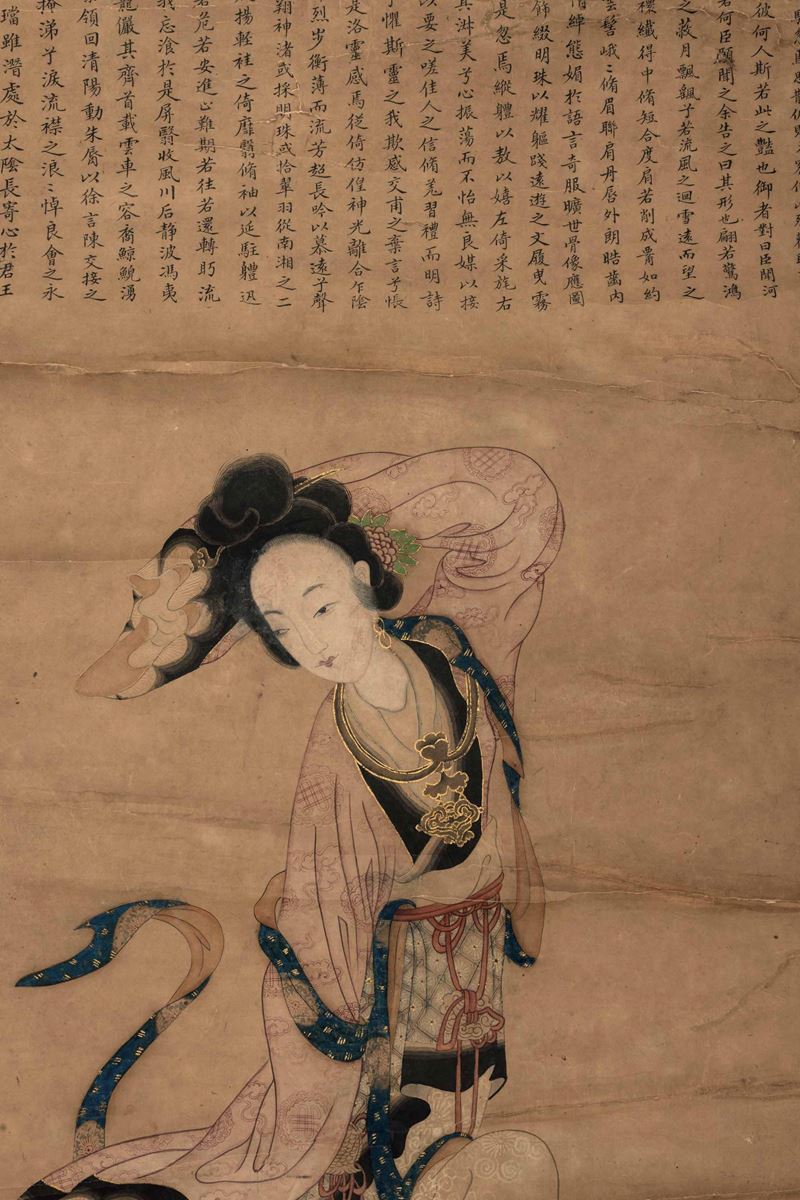 彼何人斯若此之豔也御者對曰臣聞河
若何臣願聞之余告之曰其形也翩若驚鴻
之蔽月飄飄兮若流風之迴雪遠而望之
穠纖得中脩短合度肩若削成腰如約
雲髻峨〻脩眉聯肩丹唇外朗皓齒内
情綽態媚於語言奇服曠世骨像應圖
飾綴明珠以耀軀踐遠遊之文履曳霧
是忽焉縱體以敖以嬉左倚采旄右
其淋美兮心振蕩而不怡無良媒以接
以要之嗟佳人之信脩羌習禮而明詩
兮懼斯靈之我欺感交甫之棄言兮悵
是洛靈感焉徙倚彷徨神光離合乍陰
烈步衡薄而流芳超長吟以慕遠兮聲
翔神渚或採明珠或拾翠羽從南湘之二
揚輕袿之倚靡翳脩袖以延駐體迅
若危若安進止難期若往若還轉眄流
我忘飡於是屏翳收風川后静波馮夷
龍儼其齊首載雲車之容裔鯨鯢湧
領回清陽動朱脣以徐言陳交接之
掩涕兮淚流襟之浪〻悼良會之永
璫雖潛處於太陰長寄心於君王